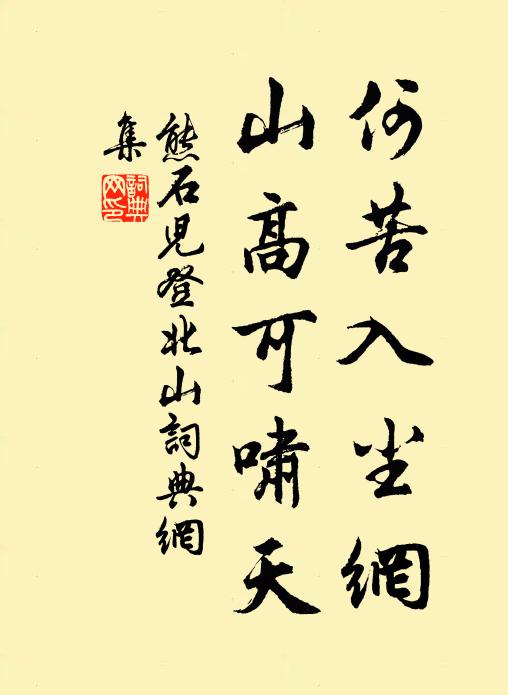 何苦入尘網
山高可啸天
熊石児登北山詞典網
集
詞典
网印